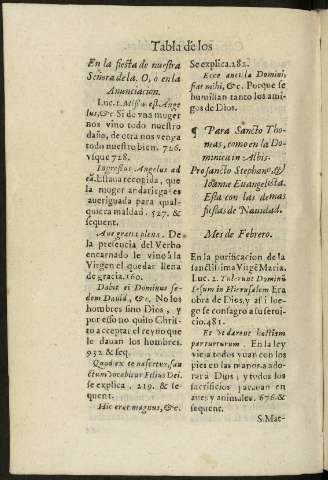 Tabla de los
En la fiesta de nuestra
Señora de la. O, ò en la
Anunciacion.
Luc. 1. Missus est Ange
lus, &c. Si de vna muger
nos vino todo nuestro
daño, de otra nos venga
todo nuestro bien. 726.
vsque 728.
Ingressus Angelus ad
eā. Estaua recogida, que
la muger andariega es
aueriguada para qual-
quiera maldad. 527. &
sequent.
Aue gratia plena. De
la presencia del Verbo
encarnado le vino à la
Virgen el quedar llena
de gracia. 160.
Dabit ei Dominus se-
dem Dauid, &c. No los
hombres sino Dios, y
por esso no quiso Chris-
to aceptar el reyno que
le dauan los hombres.
932. & seq.
Quod ex te nascetur, san
ctum vocabitur Filius Dei.
se explica. 219. & se-
quent.
Hic erat magnus, &c.
Se explica. 282.
Ecce ancilla Domini,
fiat mihi, &c. Porque se
humillan tanto los ami-
gos de Dios.
¶ Para Sancto Tho-
mas, como en la Do-
minica in Albis.
Pro sancto Stephano, &
Ioanne Euangelista.
Esta con las demas
fiestas de Nauidad.
Mes de Febrero.
En la purificacion de la
sanctissima Virgē Maria.
Luc. 2. Tulerunt Dominū
Iesum in Hierusalem Era
obra de Dios, y assi lue-
go se consagro a su serui-
cio. 481.
Et vt darent hostiam
par turturum. En la ley
vieja todos yuan con los
pies en las manos a ado-
rar à Dios, y todos los
sacrificios parauan en
aues y animales. 676. &
sequent.
S. Mat-